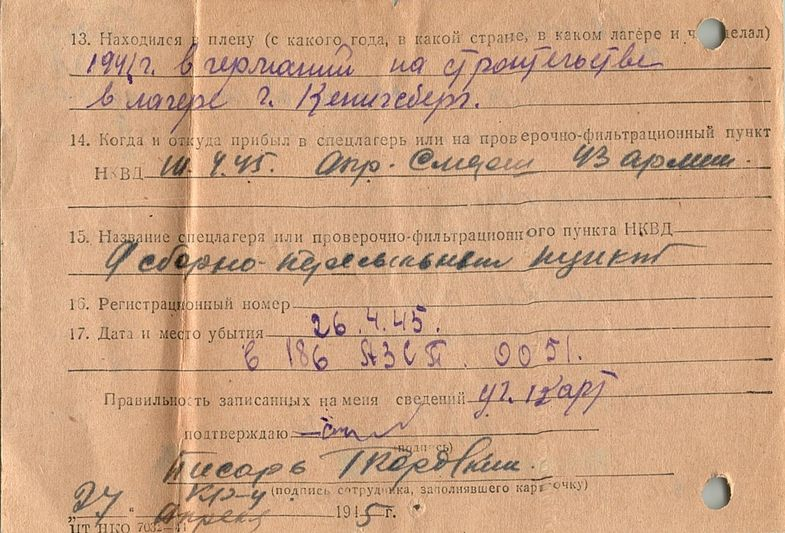 13. Находился в плену (с какого года, в какой стране, в каком лагере и ч делал)
1941г. в германий на строительстве
в лагере г. Кенигсберг.
14. Когда и откуда прибыл в спецлагерь или на проверочно-фильтрационный пункт
НКВД 4.45. Опр. Смерш 43 армии.
15. Название спецлагеря или проверочно-фильтрационного пункта НКВД
сборно-пересыльный пункт
16. Регистрационный номер
17. Дата и место убытия 26.4.45.
в 186 АЗСП. 0051.
Правильность записанных на меня сведений
подтверждаю
(подпись)
Писарь
(подпись сотрудника, заполнявшего карточку)
Апреля 1945 г.
ЦТ НКО 7032-44